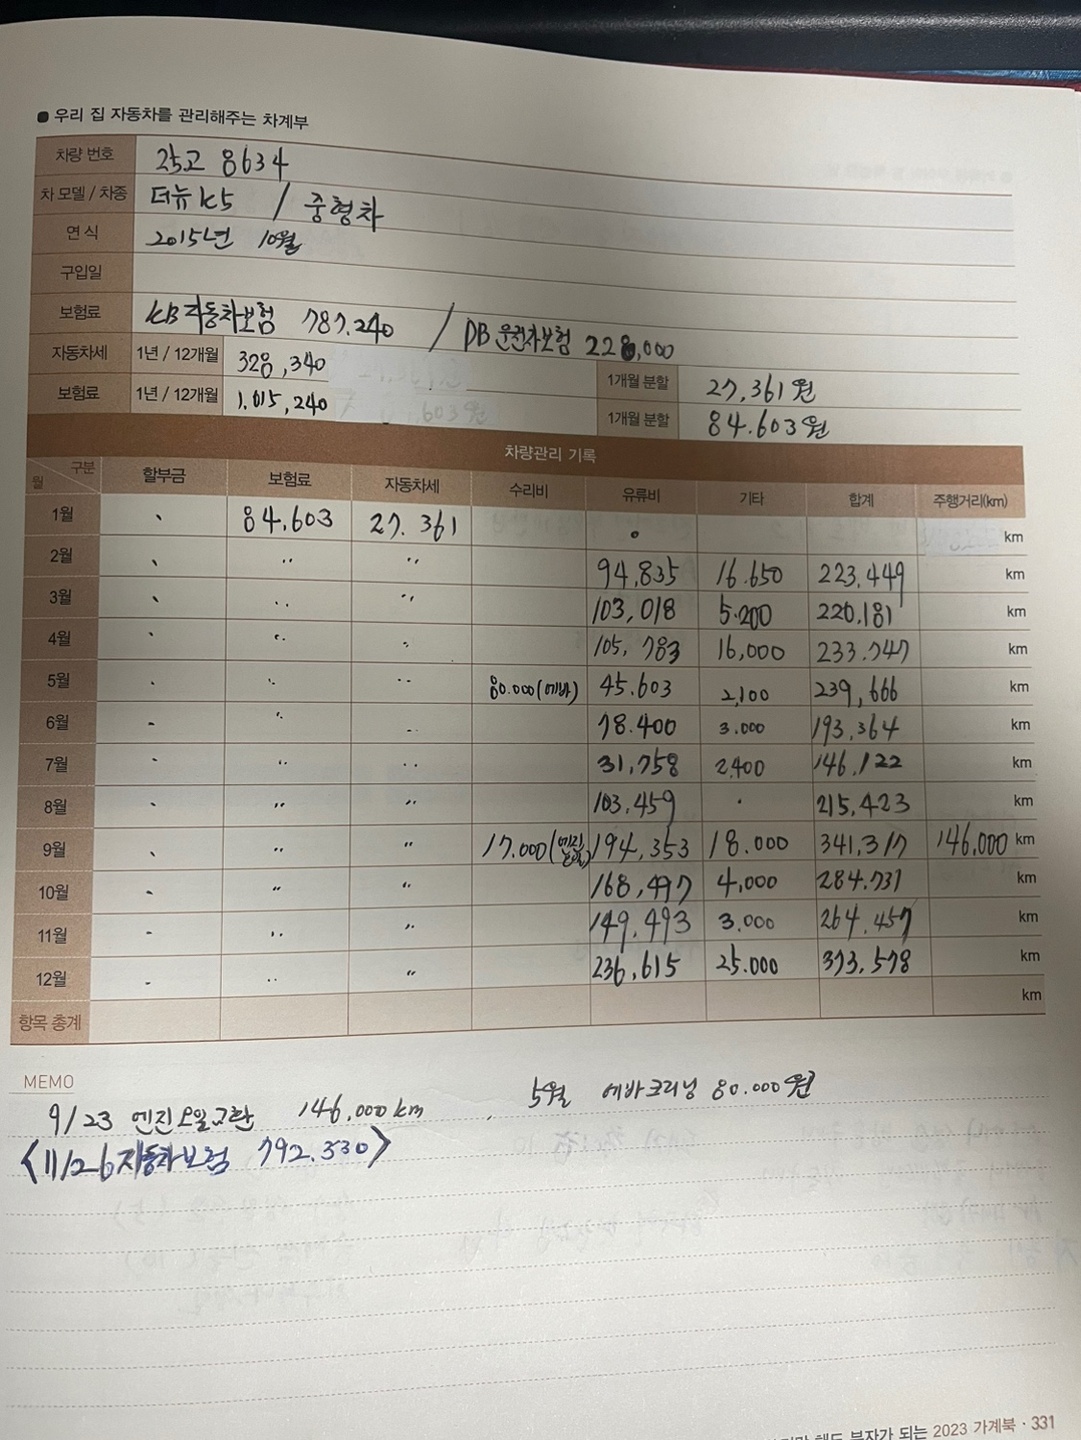 ● 우리 집 자동차를 관리해주는 차계부
차량 번호 25고 8634
차 모델 / 차종 더뉴 K5 / 중형차
연 식 2015년 10월
구입일
보험료 KB자동차보험 787.240 / DB운전자보험 228,000
자동차세 1년 / 12개월 328,340 1개월 분할 27,361원
보험료 1년 / 12개월 1,015,240 1개월 분할 84.603원
차량관리 기록
월 구분 할부금 보험료 자동차세 수리비 유류비 기타 합계 주행거리(km)
1월 、 84,603 27.361 0 km
2월 、 〃 〃 94,835 16.650 223.449 km
3월 、 〃 〃 103,018 5.200 220,181 km
4월 、 〃 〃 105,783 16,000 233.747 km
5월 、 〃 〃 80.000(에바) 45.603 2,100 239,666 km
6월 - 〃 〃 78.400 3.000 193,364 km
7월 - 〃 〃 31,758 2,400 146,122 km
8월 、 〃 〃 103,459 · 215,423 km
9월 、 〃 〃 17.000(엔진오일) 194,353 18.000 341,317 146,000 km
10월 - 〃 〃 168,497 4,000 284.731 km
11월 - 〃 〃 149,493 3.000 264.457 km
12월 - 〃 〃 236,615 25.000 373,578 km
항목 총계 km
MEMO
9/23 엔진오일교환 146,000km , 5월 에바크리닝 80.000원
<11/26 자동차보험 792.330>
해도 부자가 되는 2023 가계북 · 331